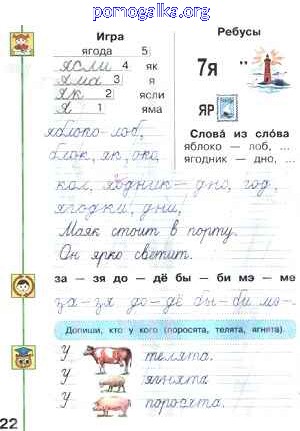 pomogalka.org
Игра
ягода 5
ясли 4 як
яма 3 я
як 2 ясли
я 1 яма
Ребусы
7я "
ЯР
Слова из слова
яблоко — лоб, ...
ягодник — дно, ...
яблоко - лоб,
блок, як, око,
кол, ягодник - дно, год,
ягодки, дни,
Маяк стоит в порту.
Он ярко светит.
за — зя до — дё бы — би мэ — ме
за - зя до - дё бы - би мэ -
Допиши, кто у кого (поросята, телята, ягнята).
У телята.
У ягнята
У поросята.
22